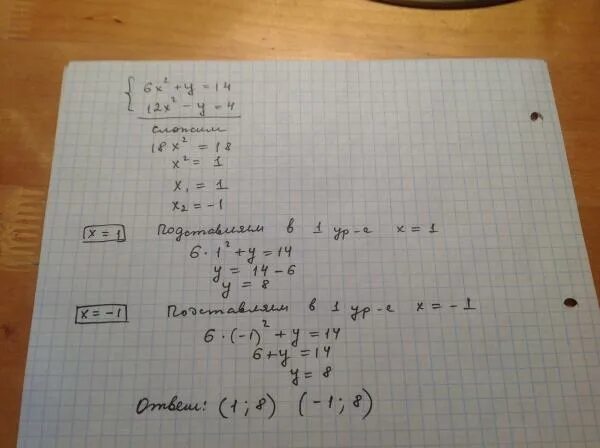 { 6x² + y = 14
12x² - y = 4
сложим
18x² = 18
x² = 1
x₁ = 1
x₂ = -1
x = 1 Подставляем в 1 ур-е x = 1
6 · 1² + y = 14
y = 14 - 6
y = 8
x = -1 Подставляем в 1 ур-е x = -1
6 · (-1)² + y = 14
6 + y = 14
y = 8
Ответ: (1; 8) (-1; 8)